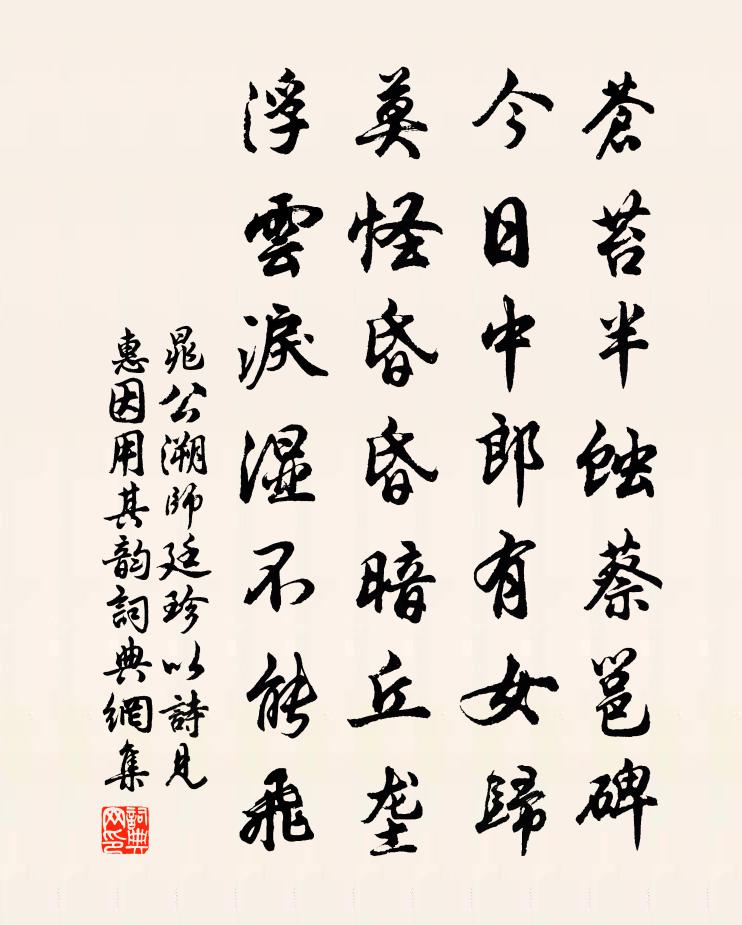 蒼苔半蝕蔡邕碑
今日中郎有女歸
莫怪昏昏暗丘垄
浮雲淚湿不能飛
晁公溯師廷珍以詩見
惠因用其韵詞典網集
詞典网印